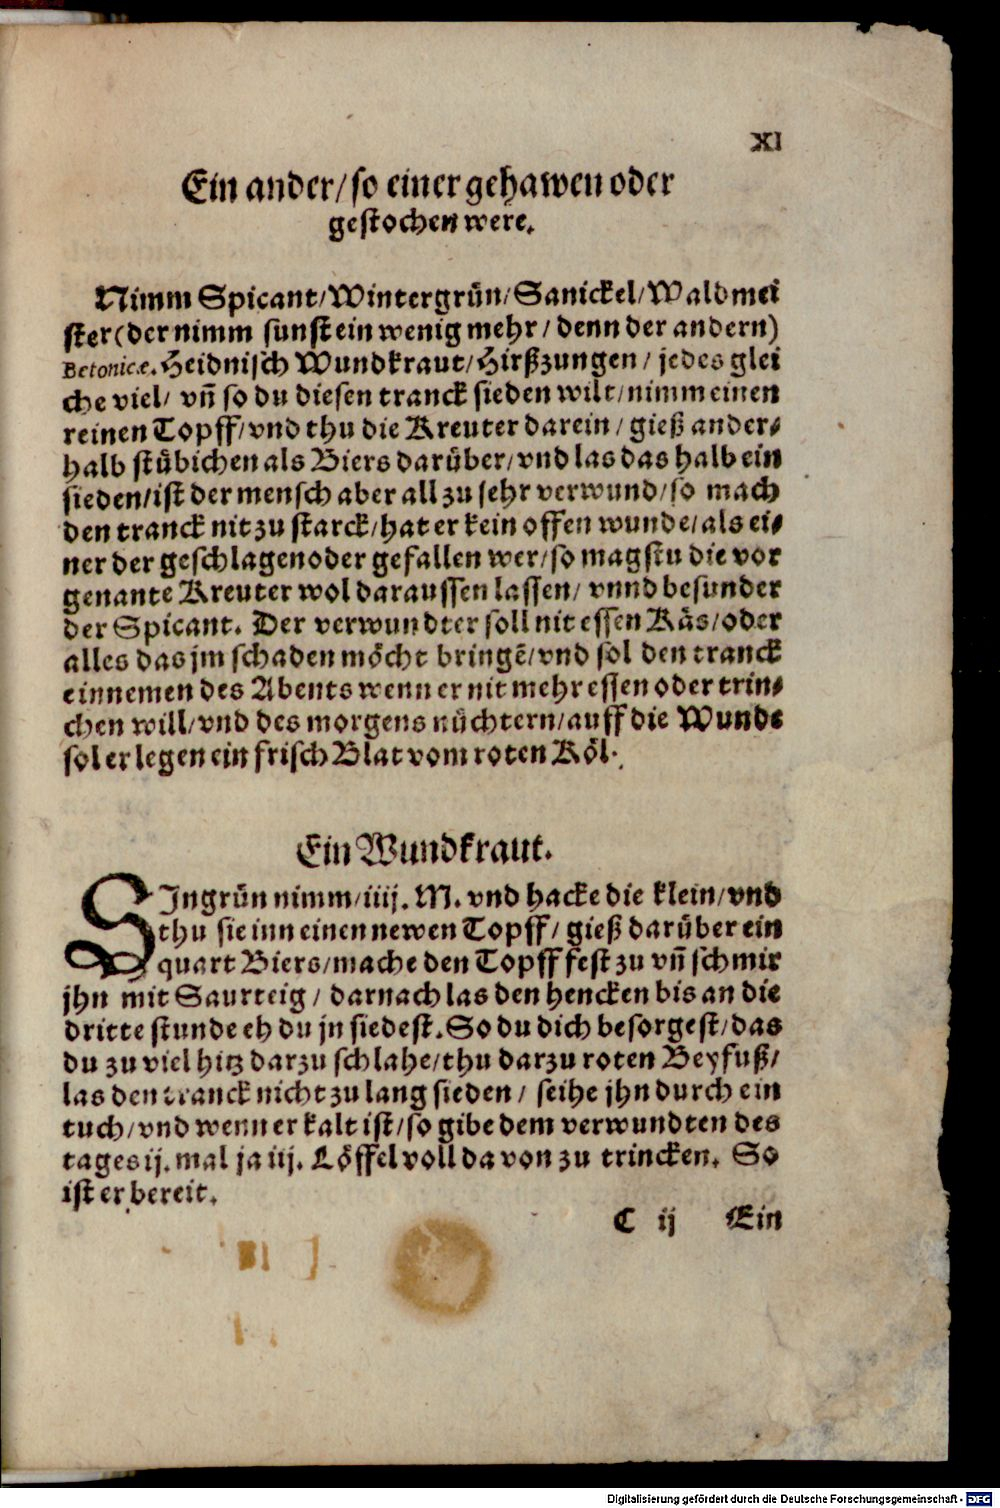 XI
Ein ander/ so einer gehawen oder
gestochen were.
Nimm Spicant/ Wintergrün/ Sanickel/ Waldmei
ster (der nimm sunst ein wenig mehr/ denn der andern)
Betonicæ. Heidnisch Wundkraut/ Hirßzungen/ jedes glei
che viel/ vñ so du diesen tranck sieden wilt/ nimm einen
reinen Topff/ vnd thu die Kreuter darein/ gieß ander⸗
halb stübichen als Biers darüber/ vnd las das halb ein
sieden/ ist der mensch aber all zu sehr verwund/ so mach
den tranck nit zu starck/ hat er kein offen wunde/ als ei⸗
ner der geschlagen oder gefallen wer/ so magstu die vor
genante Kreuter wol daraussen lassen/ vnnd besunder
der Spicant. Der verwundter soll nit essen Käs/ oder
alles das jm schaden möcht bringē/ vnd sol den tranck
einnemen des Abents wenn er nit mehr essen oder trin⸗
chen will/ vnd des morgens nüchtern/ auff die Wunde
sol er legen ein frisch Blat vom roten Köl.
Ein Wundkraut.
SIngrün nimm/ iiij. M. vnd hacke die klein/ vnd
thu sie inn einen newen Topff/ gieß darüber ein
quart Biers/ mache den Topff fest zu vñ schmir
jhn mit Saurteig/ darnach las den hencken bis an die
dritte stunde eh du jn siedest. So du dich besorgest/ das
du zu viel hitz darzu schlahe/ thu darzu roten Beyfuß/
las den tranck nicht zu lang sieden/ seihe jhn durch ein
tuch/ vnd wenn er kalt ist/ so gibe dem verwundten des
tages ij. mal ja iij. Löffel voll davon zu trincken. So
ist er bereit.
C ij Ein
Digitalisierung gefördert durch die Deutsche Forschungsgemeinschaft - DFG